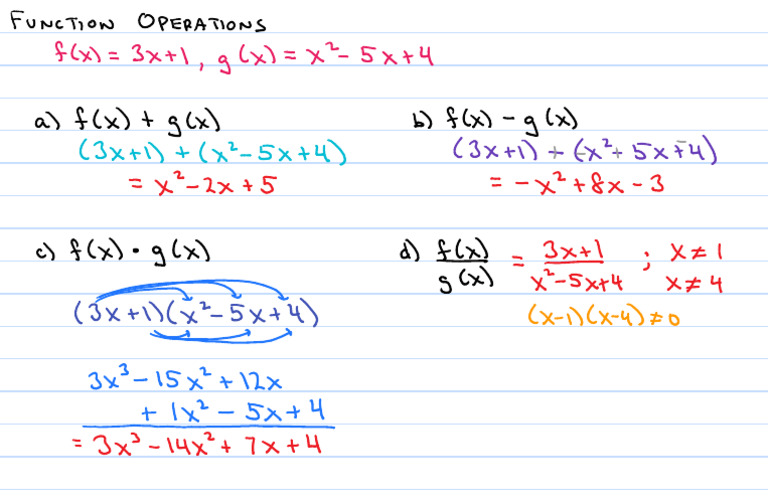 FUNCTION OPERATIONS
f(x) = 3x+1, g(x) = x² - 5x + 4
a) f(x) + g(x)
(3x+1) + (x² - 5x + 4)
= x² - 2x + 5
b) f(x) - g(x)
(3x+1) + (-x² + 5x - 4)
= -x² + 8x - 3
c) f(x) • g(x)
(3x+1)(x² - 5x + 4)
3x³ - 15x² + 12x
+ 1x² - 5x + 4
= 3x³ - 14x² + 7x + 4
d) f(x)/g(x) = (3x+1)/(x² - 5x + 4) ; x ≠ 1
x ≠ 4
(x-1)(x-4) ≠ 0